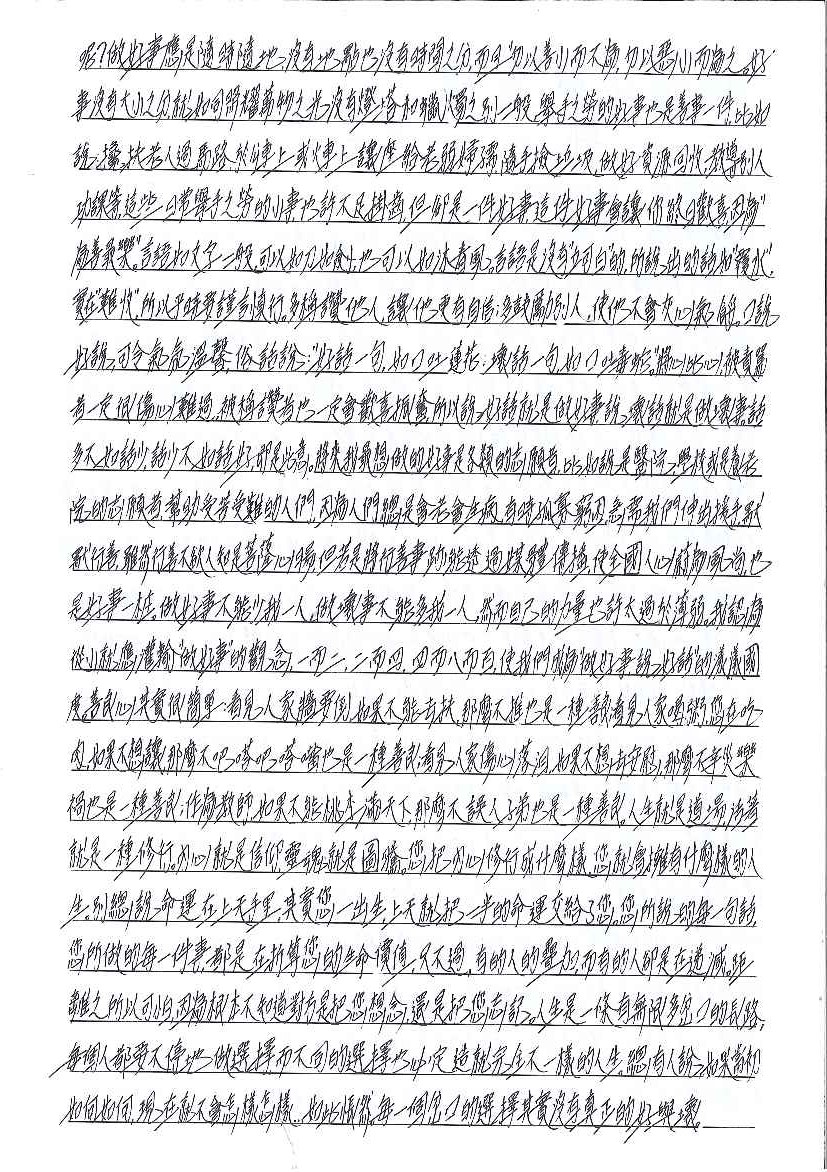 呢?做好事應是隨時隨地,沒有地點也沒有時間之分,而且“切以善小而不為,切以惡小而為之。好
事沒有大小之分,就如同照耀萬物之光沒有燈塔和蠟燭之別一般,舉手之勞的好事也是善事一件,比如
說:攙扶老人過馬路,於公車上或火車上讓座給老弱婦孺,隨手撿垃圾,做好資源回收,教導別人
功課等,這些日常舉手之勞的小事也許不足掛齒,但卻是一件好事,這件好事會讓你終日歡喜,因為“
為善最樂”。言語如文字一般,可以如刀如蝕,也可以如沐春風。言語是沒有“立可白”的,所說出的話如“覆水”,
實在“難收”,所以平時要謹言慎行。多稱讚他人,讓他更有自信;多鼓勵別人,使他不會灰心氣餒。口說
好說,可令氣氛溫馨,俗話說:“好話一句,如口吐蓮花;壞話一句,如口吐毒蛇。”將心比心,被責罵
者一定很傷心難過,被稱讚者也一定會歡喜振奮,所以說好話就是做好事,說壞話就是做壞事,話
多不如話少,話少不如話好,即是此意。將來我最想做的好事是各類的志願者,比如說是醫院、學校或是養老
院的志願者,幫助受苦受難的人們,因為人們總是會老會生病,有時孤寡、窮困,急需我們伸出援手,默
默行善,雖然行善不欲人知是菩薩心腸,但若是將行善事跡能透過媒體傳播,使全國人心蔚為風尚,也
是好事一樁。做好事不能少我一人,做壞事不能多我一人,然而自己的力量也許太過於薄弱,我認為
從小就應灌輸“做好事”的觀念,一而二,二而四,四而八而百,使我們成為“做好事、說好話”的禮儀國
度。善良心其實很簡單:看見人家牆要倒,如果不能去扶,那麼不推也是一種善良;看見人家喝粥,您在吃
肉,如果不想讓,那麼不吧嗒吧嗒嘴也是一種善良;看見人家傷心落淚,如果不想去安慰,那麼不幸災樂
禍也是一種善良;任為教師,如果不能桃李滿天下,那麼不誤人子弟也是一種善良。人生就是道場,活著
就是一種修行。內心就是信仰,靈魂就是圖騰。您把內心修行成什麼樣,您就會擁有什麼樣的人
生。別總說命運在上天手里,其實您一出生,上天就把一半的命運交給了您。您所說的每一句話,
您所做的每一件事,都是在折算您的生命價值,只不過,有的人的疊加,而有的人卻是在遞減。距
離之所以可怕,因為根本不知道對方是把您想念,還是把您忘記。人生是一條有無限多岔口的長路,
每個人都要不停地做選擇,而不同的選擇也必定造就完全不一樣的人生。總有人說:如果當初
如何如何,現在就不會怎樣怎樣…如此情然。每一個岔口的選擇其實沒有真正的好與壞。